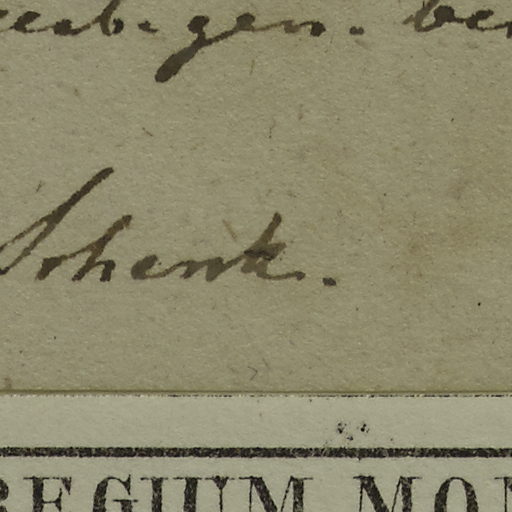 gen.
Schenk.
REGIUM MON